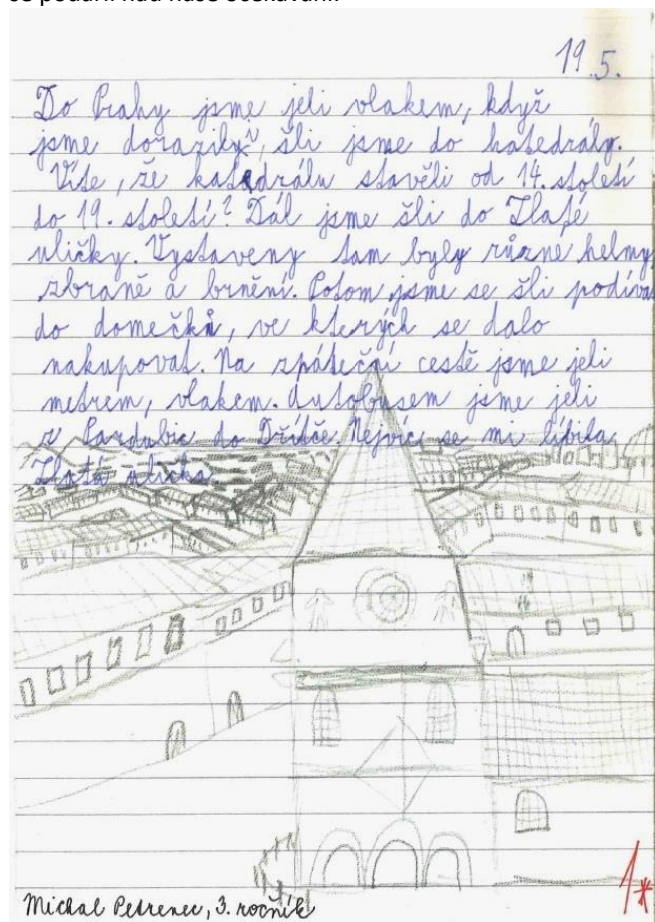 19.5.
Do Prahy jsme jeli vlakem, když
jsme dorazily, šli jsme do katedrály.
Víte, že katedrálu stavěli od 14. století
do 19. století? Dál jsme šli do Zlaté
uličky. Vystaveny tam byly různé helmy,
zbraně a brnění. Potom jsme se šli podíva
do domečků, ve kterých se dalo
nakupovat. Na zpáteční cestě jsme jeli
metrem, vlakem. Autobusem jsme jeli
z Pardubic do Dříteče. Nejvíc se mi líbila
Zlatá ulička.
1*
Michal Petrenec, 3. ročník